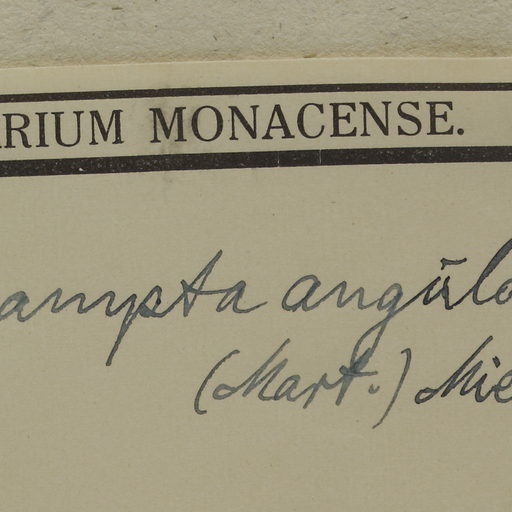 ARIUM MONACENSE.
ampta angūlo
(Mart.) Mie